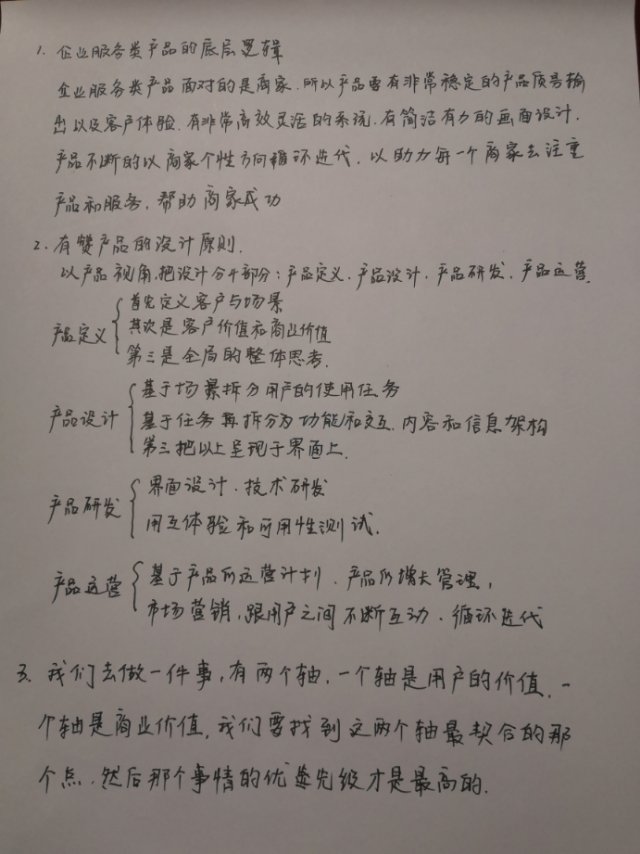 1. 企业服务类产品的底层逻辑
企业服务类产品面对的是商家.所以产品要有非常稳定的产品质量输
出以及客户体验.有非常高效灵活的系统.有简洁有力的画面设计.
产品不断的以商家个性方向循环迭代.以助力每一个商家去注重
产品和服务.帮助商家成功
2. 有赞产品的设计原则.
以产品视角,把设计分4部分:产品定义.产品设计.产品研发.产品运营.
首先定义客户与场景
产品定义 其次是客户价值和商业价值
第三是全局的整体思考.
基于场景拆分用户的使用任务
产品设计 基于任务再拆分为功能和交互.内容和信息架构
第三把以上呈现于界面上.
产品研发 界面设计.技术研发
用互体验和可用性测试.
产品运营 基于产品的运营计划.产品的增长管理,
市场营销,跟用户之间不断互动.循环迭代
3. 我们去做一件事,有两个轴,一个轴是用户的价值.一
个轴是商业价值,我们要找到这两个轴最契合的那
个点.然后那个事情的优先级才是最高的.